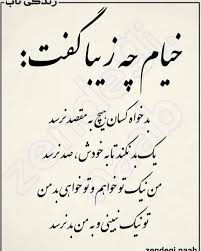 زندگی ناب
خیام چه زیبا گفت:
بدخواه کسان هیچ به مقصد نرسد
یک بد نکند تا به خودش، صد نرسد
من نیک تو خواهم و تو خواهی بد من
تو نیک نبینی و به من بد نرسد
zendegi naab